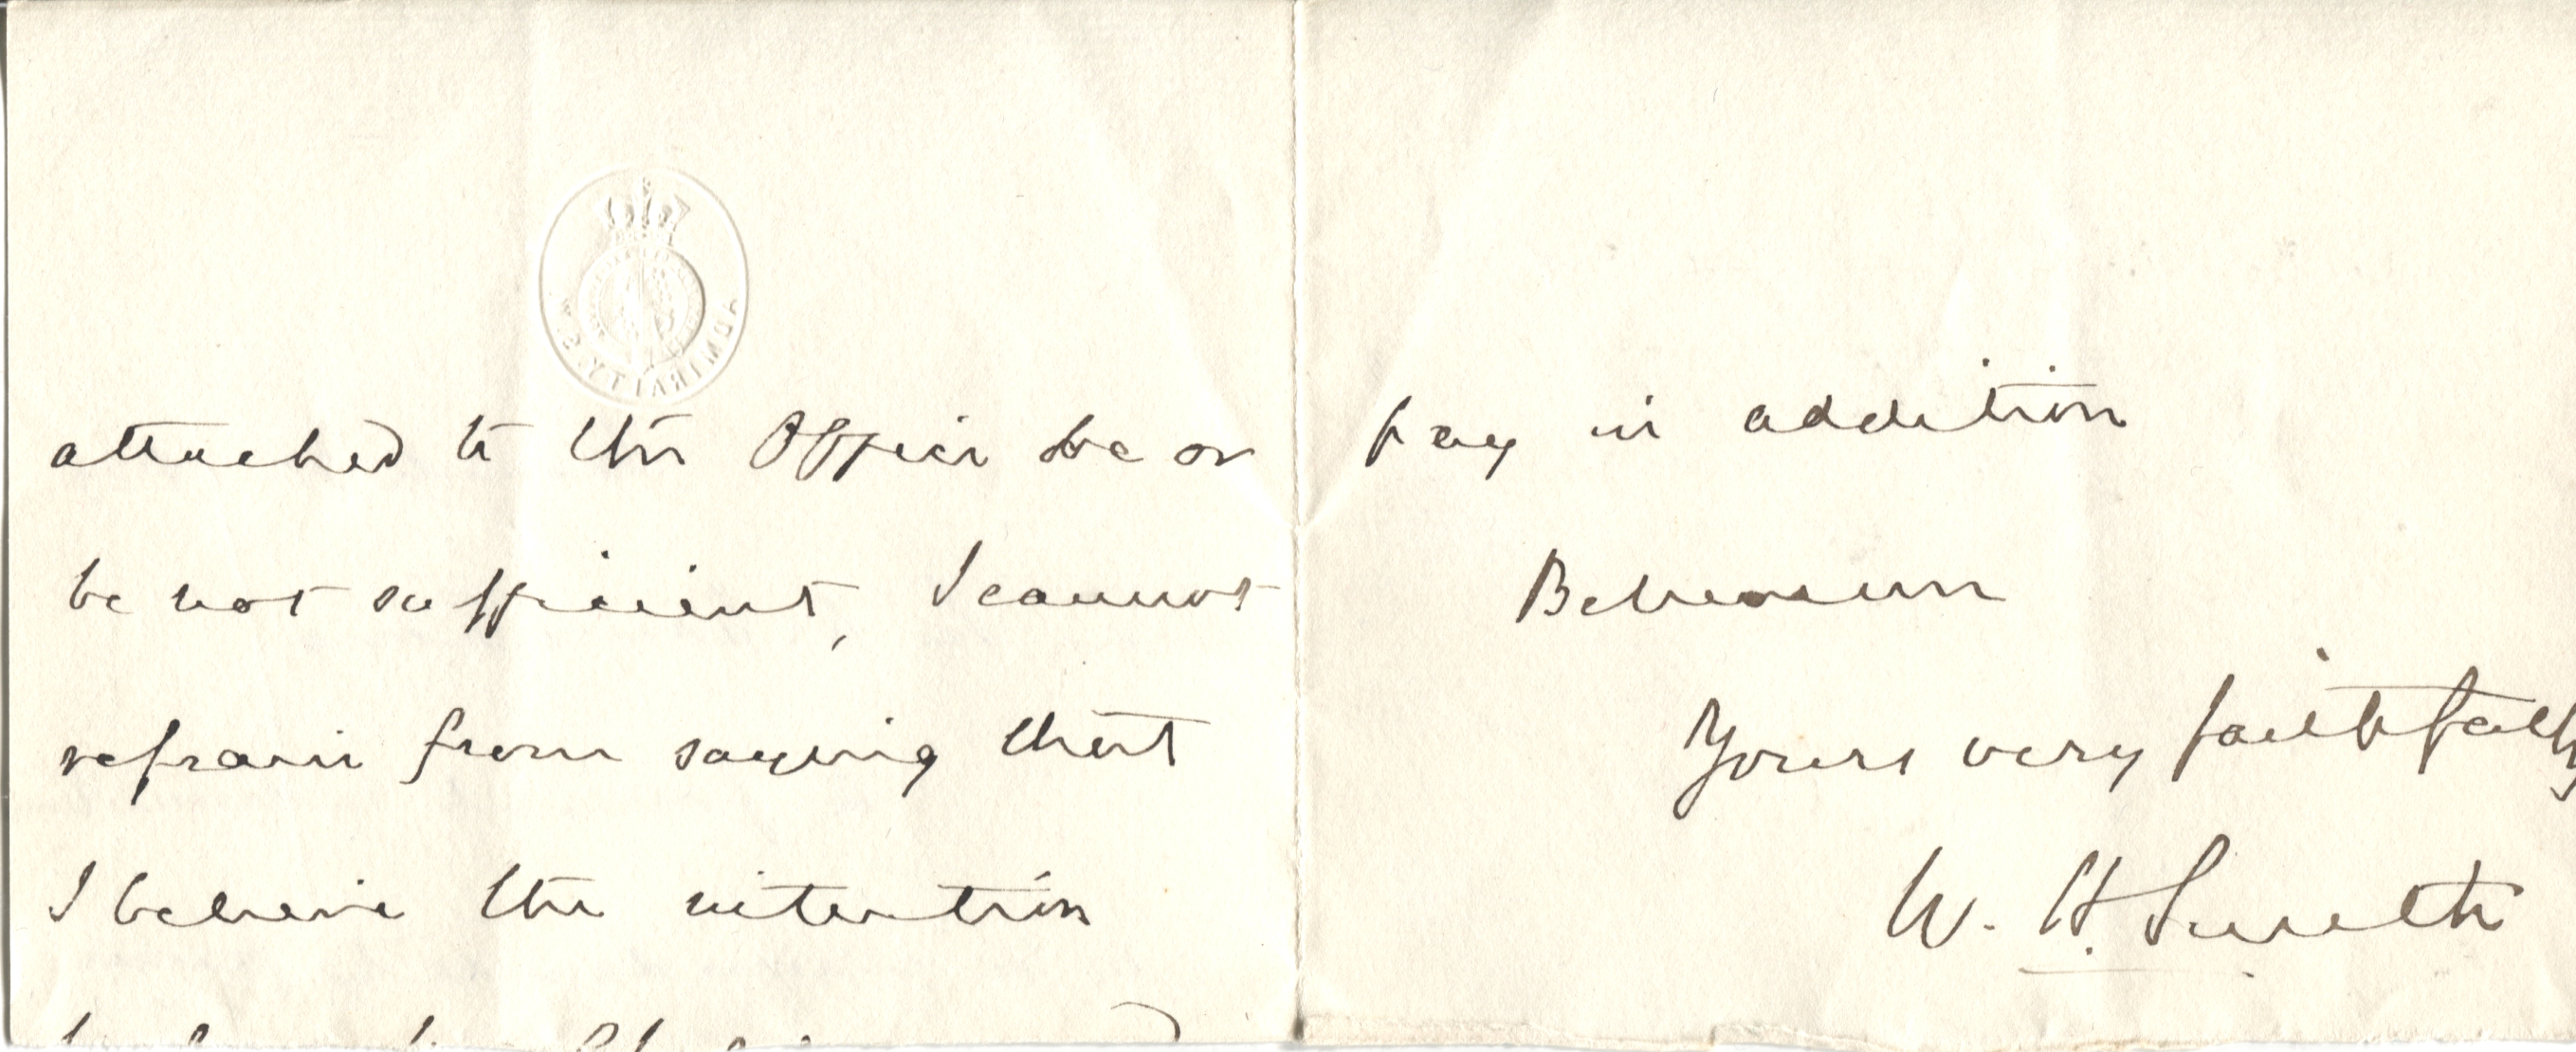 ADMIRALTY. S.W.
attached to the Office be or
be not sufficient, I cannot
refrain from saying that
I believe the intention
pay in addition
Believe me
Yours very faithfully
W. H. Smith